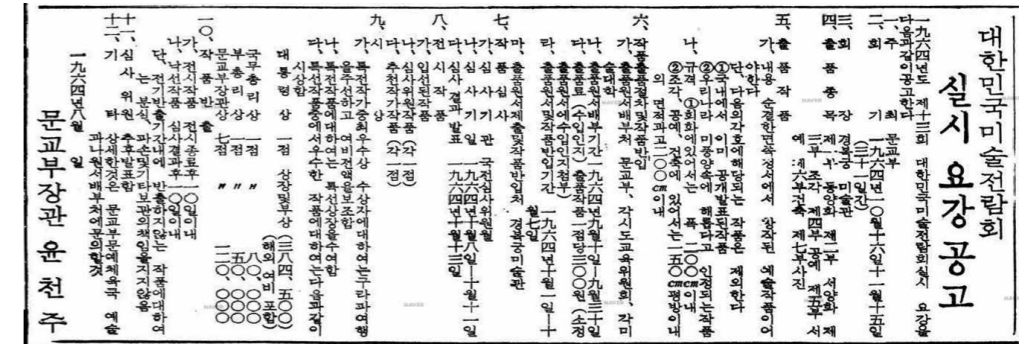 대한민국미술전람회
실시요강공고
一九六四년도 제十三회 대한민국미술전람회실시 요강을
다음과같이공고한다
一、주 최 문교부
二、회 기 一九六四년一〇월十六일十一월十五일
(三十一일간)
三、회 장 경복궁 미술관
四、출 품 종 목 제一부 동양화 제二부 서양화 제
三부 조각 제四부 공예 제五부 서
예 제六부건축 제七부사진
五、출 품 작 품
가、내용 순결한면목정서에서 창작된 예술작품이어
야한다
단、다음의각호에해당되는 작품은 제외한다
①국내에서 이미 공개발표된작품
②우리나라 미풍양속에 해롭다고 인정되는작품
나、규격 ①회화에있어서는 폭 二〇〇cm이내
②조각、공예、건축에 있어서는二五〇cm평방이내
의 면적과고二〇〇cm이내
六、작품출품절차및작품반입
가、출품원서배부처 문교부、각시도교육위원회、각미
술대학
나、출품원서배부기간 一九六四년九월十일—九월三十일
다、출품료(수입인지) 출품작품一점당三〇〇원(소정
출품원서에수입인지첨부)
라、출품원서및작품반입기간 一九六四년十월一일—十
월七일
마、출품원서제출및작품반입처 경복궁미술관
七、작 품 심 사
가、심 사 기 관 국전심사위원회
나、심 사 기 일 一九六四년十월八일—十월十一일
다、심사 결과 발표 一九六四년十월十三일
八、전 시 작 품
가、입선된작품
나、심사위원작품(각一점)
다、추천작가작품(각一점)
九、시 상
가、특전작가중최우수상 수상자에대하여는구라파여행
을주선하고 여비전액을보조함
나、특전작가에대하는 특선상장을수여함
다、특선작품중에서우수한 작품에대하여는다음과같이
시상함
대 통 령 상 一점 상장및부상 (三八四、五〇〇)
(해외여비포함)
국무총리상 一점 〃 八〇、〇〇〇
부 총 리 상 一점 〃 五〇、〇〇〇
문교부장관상 七점 〃 一二〇、〇〇〇
一〇、작 품 반 출
가、전시작품 전시종료후一〇일이내
나、낙선작품 심사결과후一〇일이내
단、전기반출기간내에 반출하지않는 작품에대하여
는 분실、파손및기타보관의책임을지지않음
十一、심 사 위 원 추후발표함
十二、기 타 상세한것은 문교부문예체육국 예술
과나원서배부처에문의할것
一九六四년八월 일
문교부장관 윤 천 주